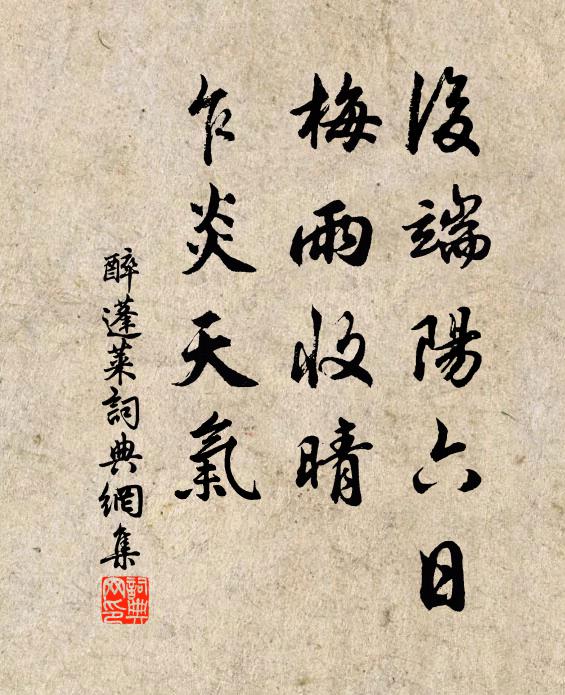 後端陽六日
梅雨收晴
乍炎天氣
醉蓬萊詞典網集
詞典網印